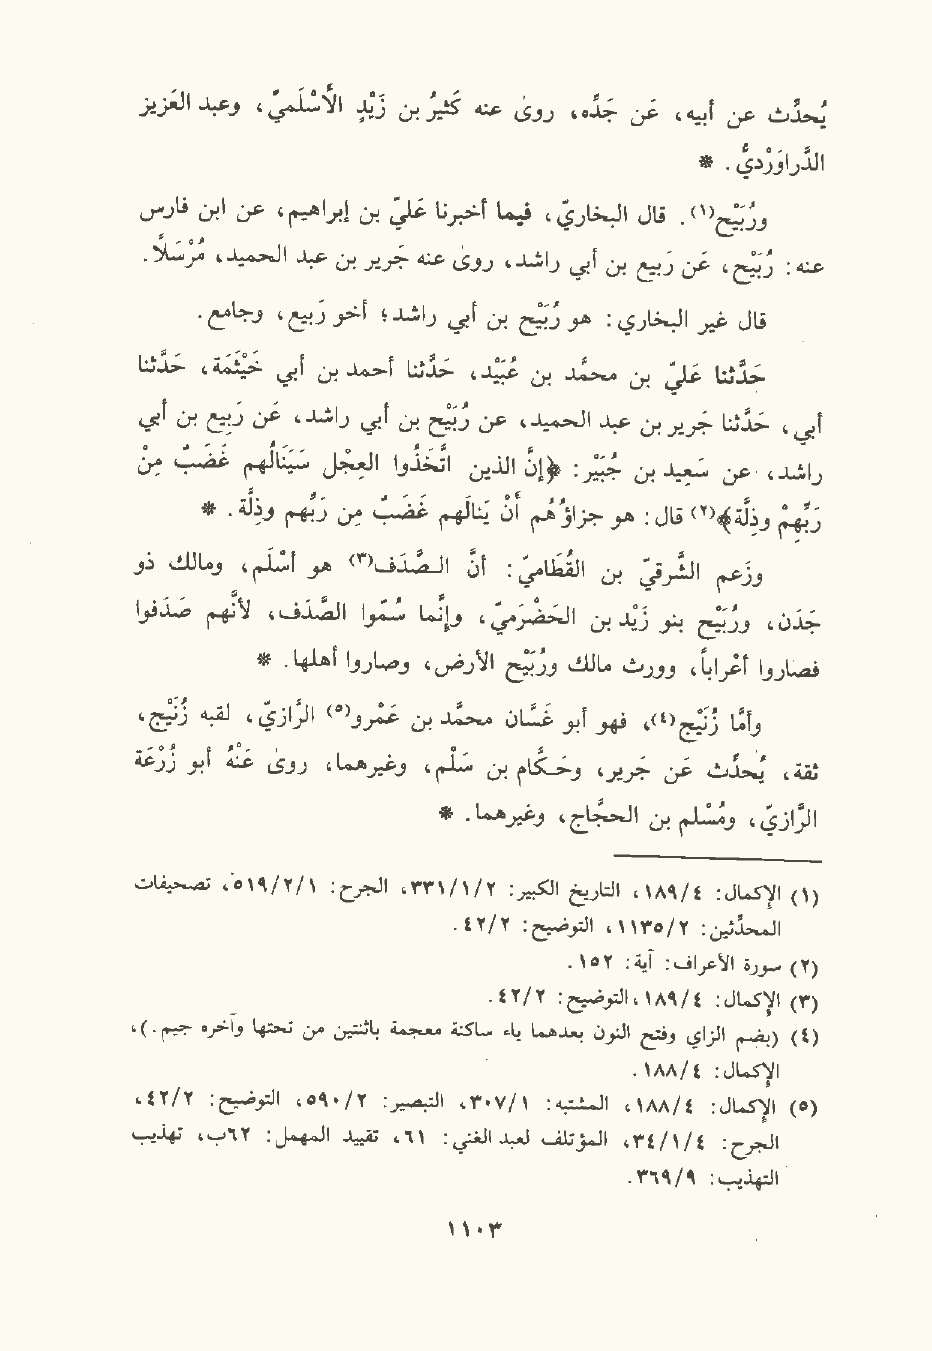 يُحدِّث عن أبيه، عَن جَدِّه، روىٰ عنه كَثيرُ بن زَيْدٍ الأَسْلَميّ، وعبد العَزيز
الدَّراوَرْديُّ. *
ورُبَيْح(١). قال البخاريّ، فيما أخبرنا عَليّ بن إبراهيم، عن ابن فارس
عنه: رُبَيْح، عَن رَبيع بن أبي راشد، روىٰ عنه جَرير بن عبد الحميد، مُرْسَلاً.
قال غير البخاري: هو رُبَيْح بن أبي راشد؛ أخو رَبيع، وجامع.
حَدَّثنا عَليّ بن محمَّد بن عُبَيْد، حَدَّثنا أحمد بن أبي خَيْثَمَة، حَدَّثنا
أبي، حَدَّثنا جَرير بن عبد الحميد، عن رُبَيْح بن أبي راشد، عَن رَبِيع بن أبي
راشد، عن سَعِيد بن جُبَير: ﴿إنَّ الذين اتَّخَذُوا العِجْل سَيَنَالُهم غَضَبٌ مِنْ
رَبِّهِمْ وذِلَّة﴾(٢) قال: هو جزاؤُهُم أَنْ يَنَالَهم غَضَبٌ مِن رَبِّهم وذِلَّة. *
وزعم الشَّرقيّ بن القُطَاميّ: أنَّ الـصَّـدَف(٣) هو أَسْلَم، ومالك ذو
جَدَن، ورُبَيْح بنو زَيْد بن الحَضْرَميّ، وإنَّما سُمّوا الصَّدَف، لأنَّهم صَدَفوا
فصاروا أعْراباً، وورث مالك ورُبَيْح الأرض، وصاروا أهلها. *
وأمَّا زُنَيْج(٤)، فهو أبو غسَّان محمَّد بن عَمْرو(٥) الرَّازيّ، لقبه زُنَيْج،
ثقة، يُحدِّث عَن جَرير، وحَـكَّام بن سَلْم، وغيرهما، روىٰ عَنْهُ أبو زُرْعَة
الرَّازيّ، ومُسْلم بن الحجَّاج، وغيرهما. *
(١) الإكمال: ٤/١٨٩، التاريخ الكبير: ٢/١/٣٣١، الجرح: ١/٢/٥١٩، تصحيفات
المحدِّثين: ٢/١١٣٥، التوضيح: ٢/٤٢.
(٢) سورة الأعراف: آية: ١٥٢.
(٣) الإكمال: ٤/١٨٩، التوضيح: ٢/٤٢.
(٤) (بضم الزاي وفتح النون بعدهما ياء ساكنة معجمة باثنتين من تحتها وآخره جيم.)،
الإكمال: ٤/١٨٨.
(٥) الإكمال: ٤/١٨٨، المشتبه: ١/٣٠٧، التبصير: ٢/٥٩٠، التوضيح: ٢/٤٢،
الجرح: ٤/١/٣٤، المؤتلف لعبد الغني: ٦١، تقييد المهمل: ٦٢ب، تهذيب
التهذيب: ٩/٣٦٩.
١١٠٣